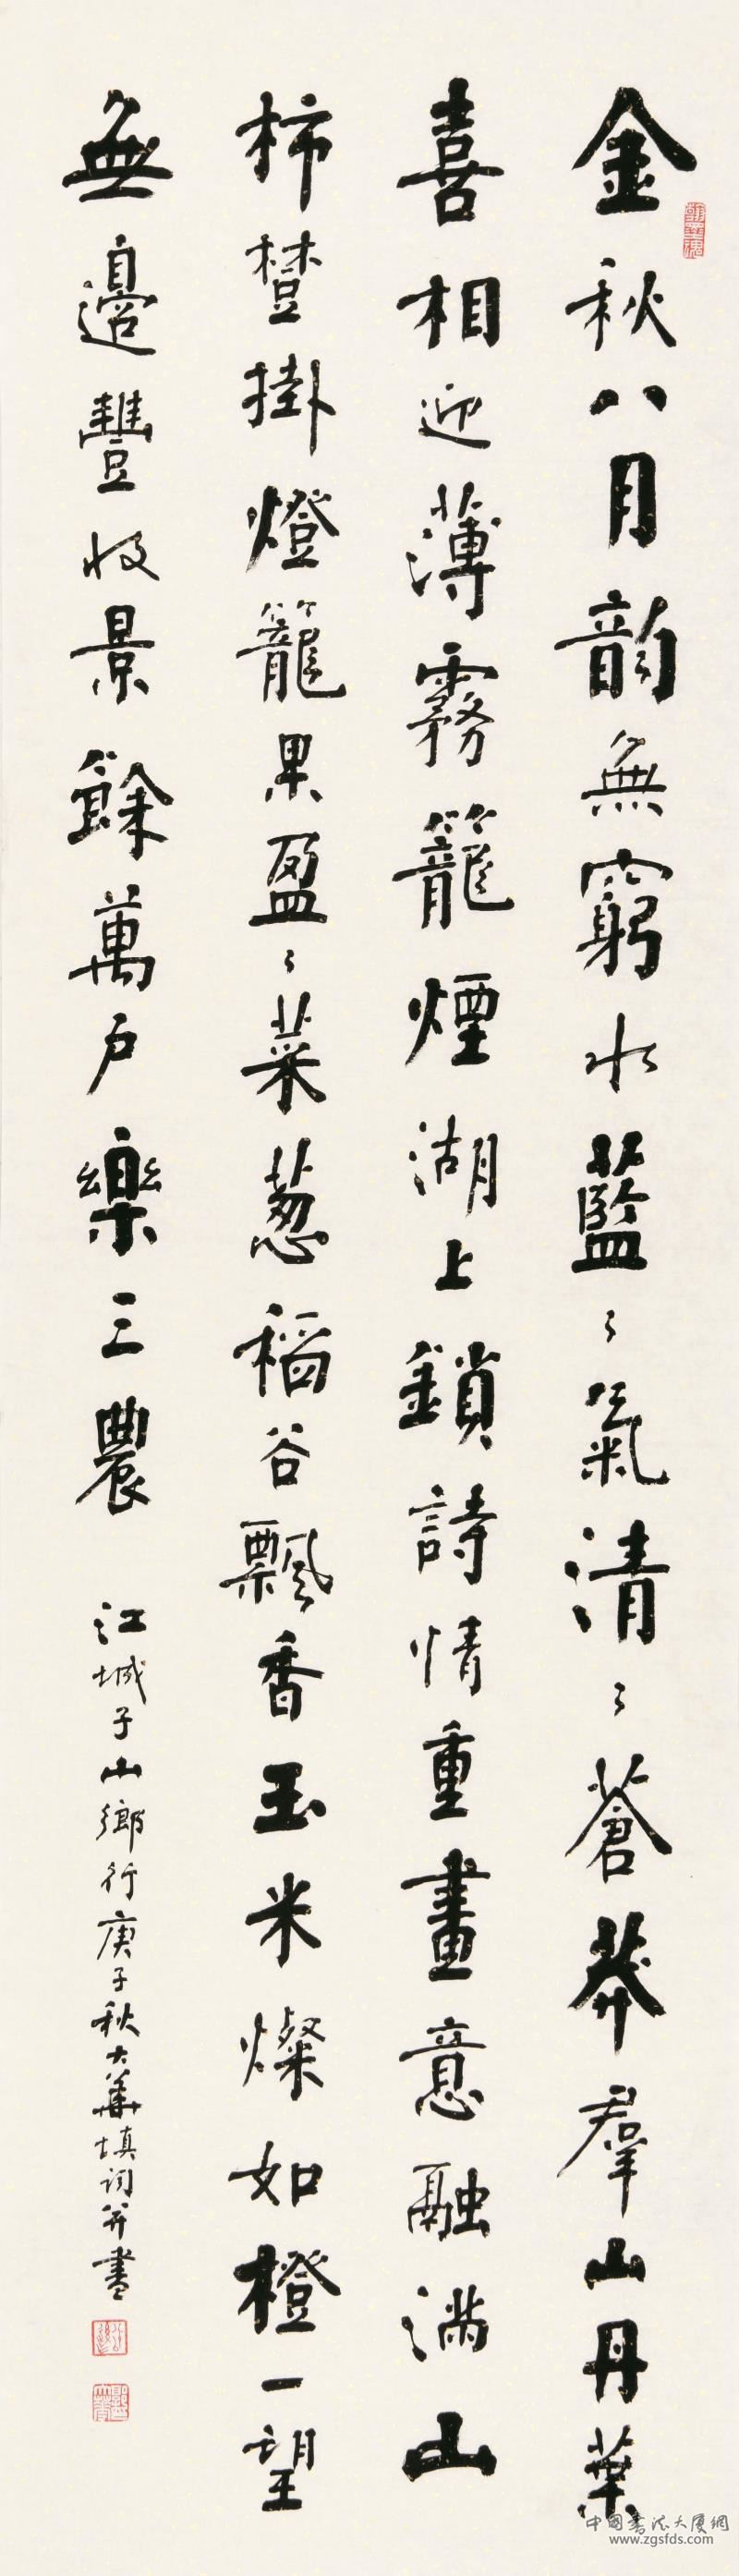 金秋八月韵無窮水藍〻氣清〻蒼莽羣山丹葉
喜相迎薄霧籠煙湖上鎖詩情重畫意融满山
柿樹掛燈籠果盈〻菜葱稻谷飄香玉米燦如橙一望
無邊豐收景餘萬户樂三農
江城子山鄉行庚子秋大華填詞并書
中国書法大厦網
www.zgsfds.com